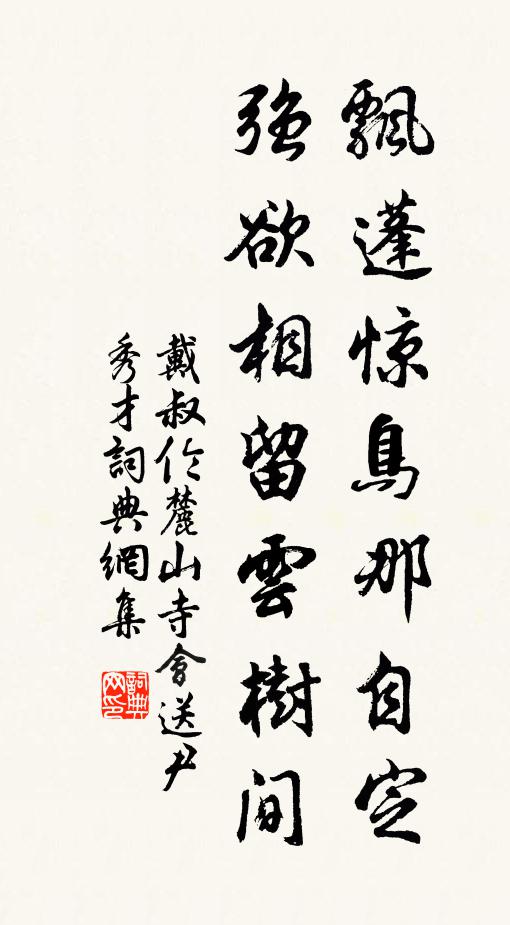 飄蓬惊鳥那自定
強欲相留雲樹間
戴叔伦麓山寺會送尹
秀才詞典網集
詞典网印